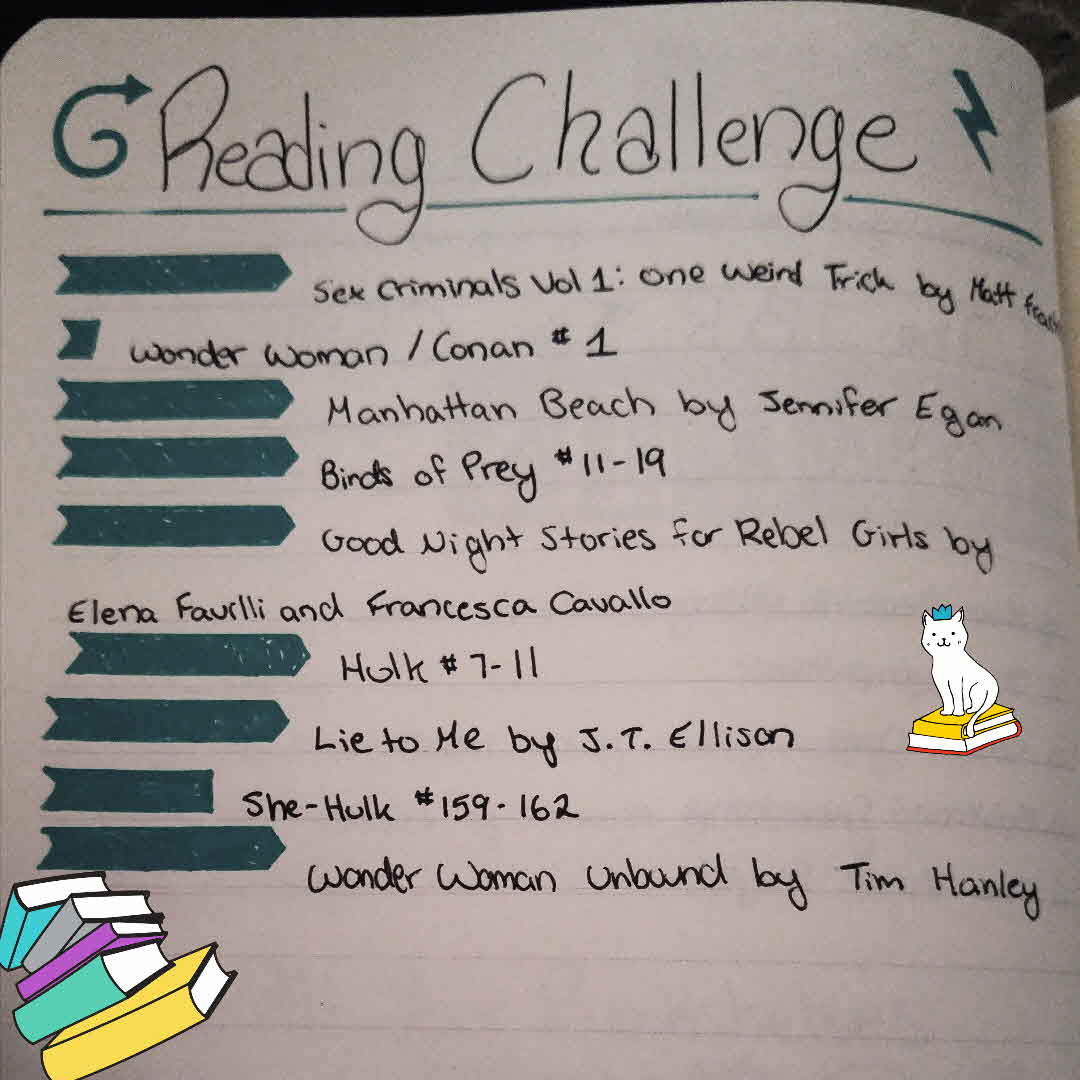 Reading Challenge
Sex Criminals Vol 1: One Weird Trick by Matt
Wonder Woman / Conan #1
Manhattan Beach by Jennifer Egan
Birds of Prey #11-19
Good Night Stories for Rebel Girls by
Elena Favilli and Francesca Cavallo
Hulk #7-11
Lie to Me by J.T. Ellison
She-Hulk #159-162
Wonder Woman Unbound by Tim Hanley